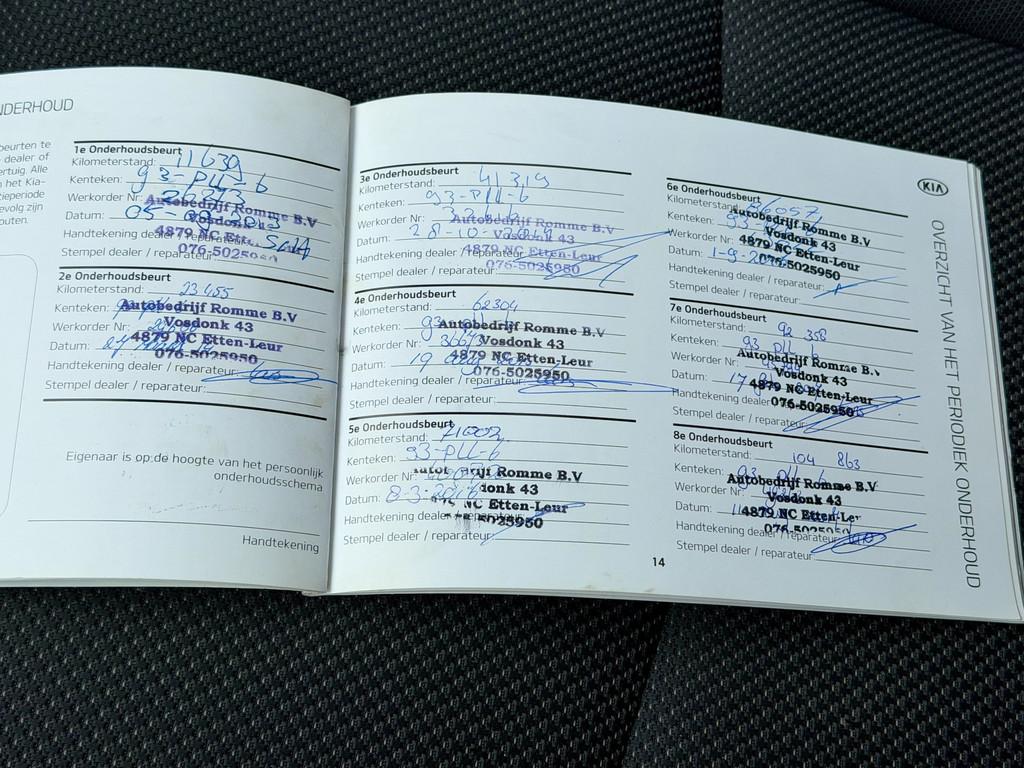 NDERHOUD
beurten te
dealer of
ertuig. Alle
het Kia-
tieperiode
evolg zijn
outen.
1e Onderhoudsbeurt
Kilometerstand: 11639
Kenteken: 93-PLL-6
Werkorder Nr:
Datum: 05-
Handtekening dealer / reparateur:
Stempel dealer / reparateur:
Autobedrijf Romme B.V
Vosdonk
4879 NC Ett
076-5025950
2e Onderhoudsbeurt
Kilometerstand: 23455
Kenteken:
Werkorder Nr:
Datum:
Handtekening dealer / reparateur:
Stempel dealer / reparateur:
Autobedrijf Romme B.V
Vosdonk 43
4879 NC Etten-Leur
076-5025950
Eigenaar is op de hoogte van het persoonlijk
onderhoudsschema
Handtekening
3e Onderhoudsbeurt
Kilometerstand: 41319
Kenteken: 93-PLL-6
Werkorder Nr:
Datum: 28-10-
Handtekening dealer / reparateur:
Stempel dealer / reparateur:
Autobedrijf Romme B.V
Vosdonk 43
4879 NC Etten-Leur
076-5025950
4e Onderhoudsbeurt
Kilometerstand: 62304
Kenteken: 93
Werkorder Nr:
Datum: 19
Handtekening dealer / reparateur:
Stempel dealer / reparateur:
Autobedrijf Romme B.V
Vosdonk 43
4879 NC Etten-Leur
076-5025950
5e Onderhoudsbeurt
Kilometerstand: 71002
Kenteken: 93-PLL-6
Werkorder Nr:
Datum: 8-3-2016
Handtekening dealer / reparateur:
Stempel dealer / reparateur:
Romme B.V
donk 43
NC Etten-Leur
5025950
14
6e Onderhoudsbeurt
Kilometerstand:
Kenteken: 93
Werkorder Nr:
Datum: 1-9-
Handtekening dealer / reparateur:
Stempel dealer / reparateur:
Autobedrijf Romme B.V
Vosdonk 43
4879 NC Etten-Leur
076-5025950
7e Onderhoudsbeurt
Kilometerstand: 92 358
Kenteken: 93 PLL 6
Werkorder Nr:
Datum: 17
Handtekening dealer
Stempel dealer / reparateur:
Autobedrijf Romme B.V
Vosdonk 43
4879 NC Etten-Leur
076-5025950
8e Onderhoudsbeurt
Kilometerstand: 104 863
Kenteken: 93 PLL 6
Werkorder Nr:
Datum: 11
Handtekening dealer / reparateur:
Stempel dealer / reparateur:
Autobedrijf Romme B.V
Vosdonk 43
4879 NC Etten-Leur
076-5025950
KIA
OVERZICHT VAN HET PERIODIEK ONDERHOUD